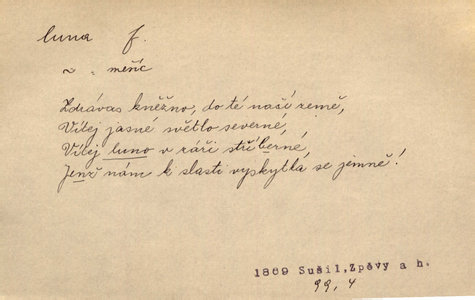 luna f.
~ = měříc
Zdrávas kněžno, do té naší země,
Vítej jasné světlo severné,
Vítej luno v záři stříberné,
Jenž nám k slasti vyskytla se jemně!
1869 Sušil, Zpěvy a h.
99, 4